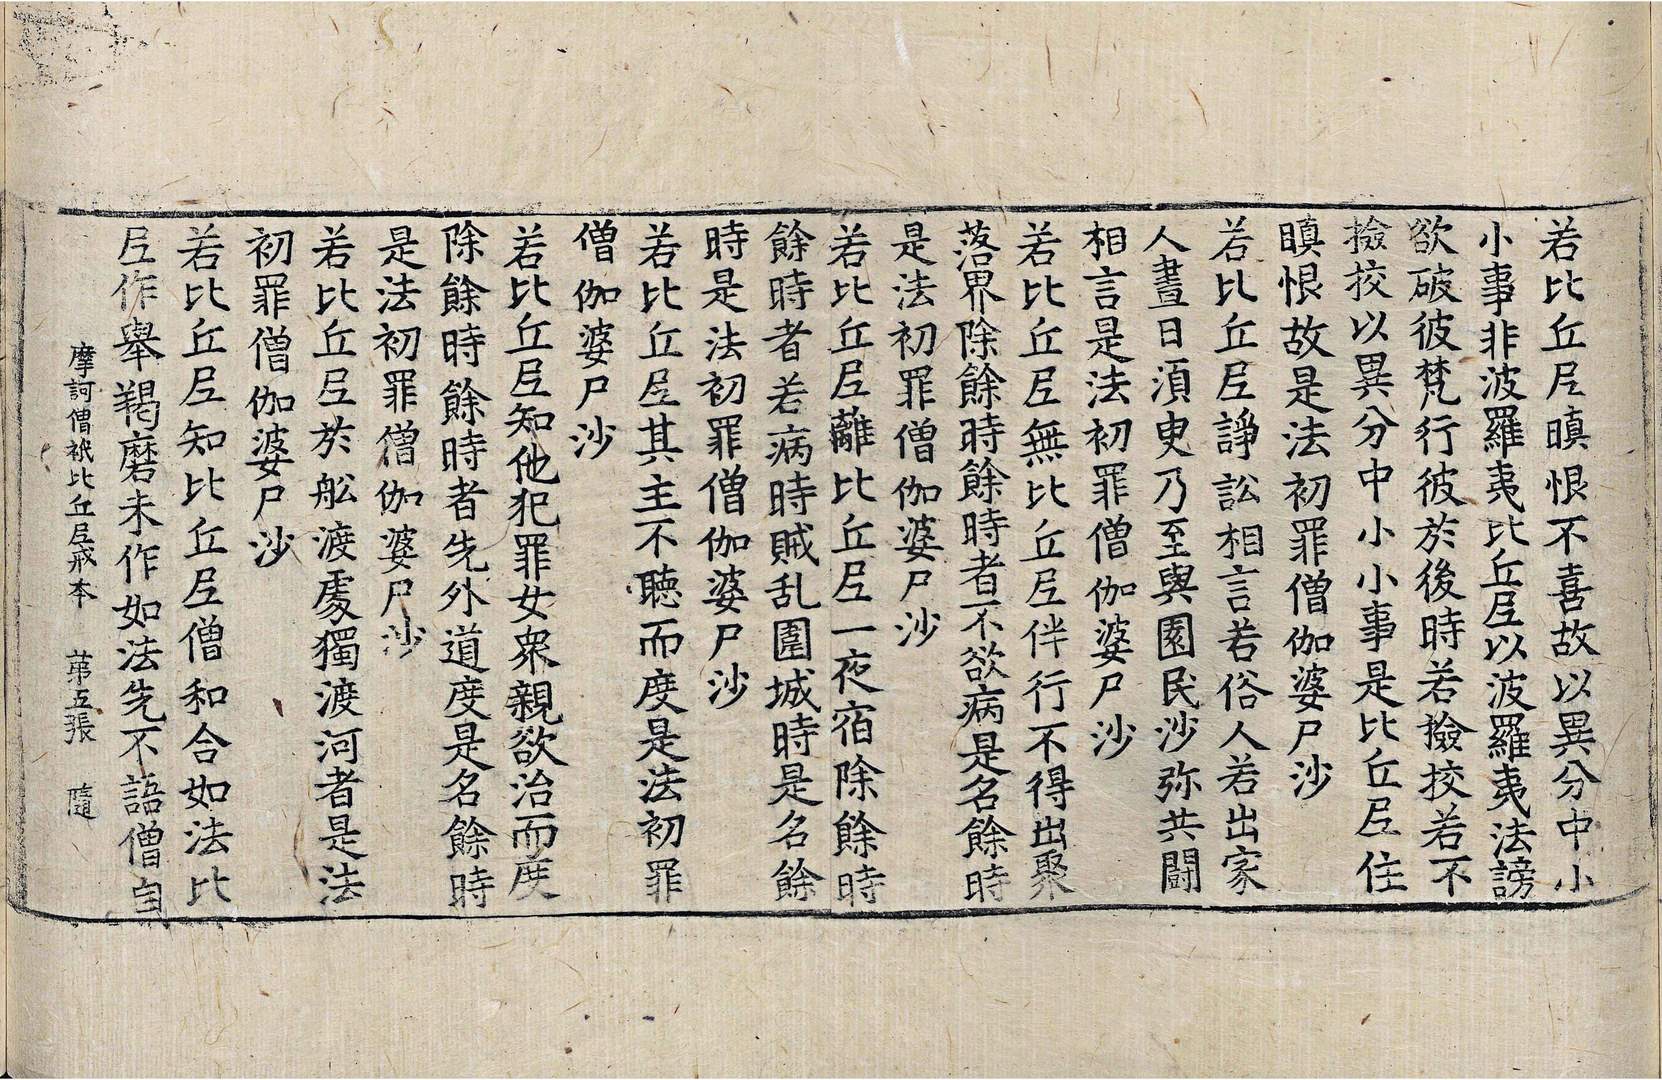 若比丘尼瞋恨不喜故以異分中小
小事非波羅夷比丘尼以波羅夷法謗
欲破彼梵行彼於後時若撿挍若不
撿挍以異分中小小事是比丘尼住
瞋恨故是法初罪僧伽婆尸沙
若比丘尼諍訟相言若俗人若出家
人晝日須臾乃至與園民沙弥共鬪
相言是法初罪僧伽婆尸沙
若比丘尼無比丘尼伴行不得出聚
落界除餘時餘時者不欲病是名餘時
是法初罪僧伽婆尸沙
若比丘尼離比丘尼一夜宿除餘時
餘時者若病時賊乱圍城時是名餘
時是法初罪僧伽婆尸沙
若比丘尼其主不聽而度是法初罪
僧伽婆尸沙
若比丘尼知他犯罪女衆親欲治而度
除餘時餘時者先外道度是名餘時
是法初罪僧伽婆尸沙
若比丘尼於舩渡處獨渡河者是法
初罪僧伽婆尸沙
若比丘尼知比丘尼僧和合如法比
尼作舉羯磨未作如法先不語僧自
摩訶僧祇比丘尼戒本 第五張 隨